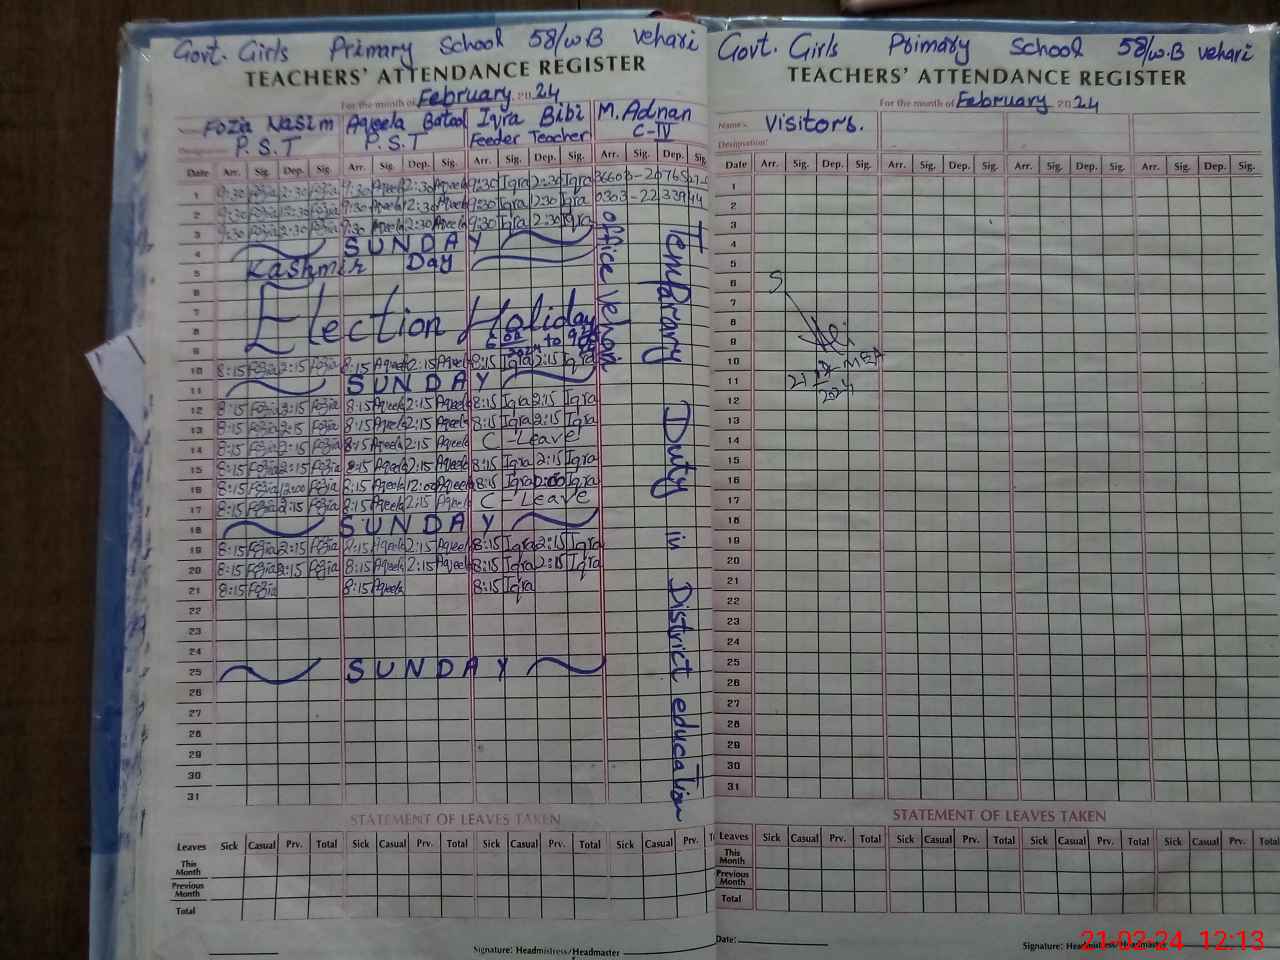 Govt. Girls Primary School 58/W.B Vehari
TEACHERS' ATTENDANCE REGISTER
For the month of February 2024
Fozia Nasim Aqeela Batool Iqra Bibi M. Adnan
P.S.T P.S.T Feeder Teacher C-IV
Date Arr. Sig. Dep. Sig. Arr. Sig. Dep. Sig. Arr. Sig. Dep. Sig. Arr. Sig. Dep. Sig.
1 9:30 Fozia 2:30 Fozia 9:30 Aqeela 2:30 Aqeela 9:30 Iqra 2:30 Iqra
2 9:30 Fozia 2:30 Fozia 9:30 Aqeela 2:30 Aqeela 9:30 Iqra 2:30 Iqra 0303-2233944
3 9:30 Fozia 2:30 Fozia 9:30 Aqeela 2:30 Aqeela 9:30 Iqra 2:30 Iqra
4 SUNDAY
5 Kashmir Day
6
7 Election Holiday
8
9
10 8:15 Fozia 2:15 Fozia 8:15 Aqeela 2:15 Aqeela 8:15 Iqra 2:15 Iqra
11 SUNDAY
12 8:15 Fozia 2:15 Fozia 8:15 Aqeela 2:15 Aqeela 8:15 Iqra 2:15 Iqra
13 8:15 Fozia 2:15 Fozia 8:15 Aqeela 2:15 Aqeela 8:15 Iqra 2:15 Iqra
14 8:15 Fozia 2:15 Fozia 8:15 Aqeela 2:15 Aqeela C-Leave
15 8:15 Fozia 2:15 Fozia 8:15 Aqeela 2:15 Aqeela 8:15 Iqra 2:15 Iqra
16 8:15 Fozia 12:00 Fozia 8:15 Aqeela 12:00 Aqeela 8:15 Iqra 12:00 Iqra
17 8:15 Fozia 2:15 Fozia 8:15 Aqeela 2:15 Aqeela C-Leave
18 SUNDAY
19 8:15 Fozia 2:15 Fozia 8:15 Aqeela 2:15 Aqeela 8:15 Iqra 2:15 Iqra
20 8:15 Fozia 2:15 Fozia 8:15 Aqeela 2:15 Aqeela 8:15 Iqra 2:15 Iqra
21 8:15 Fozia 8:15 Aqeela 8:15 Iqra
22
23
24
25 SUNDAY
26
27
28
29
30
31
Temprary Duty in District education
office Vehari
STATEMENT OF LEAVES TAKEN
Leaves Sick Casual Prv. Total Sick Casual Prv. Total Sick Casual Prv. Total Sick Casual Prv.
This Month
Previous Month
Total
Signature: Headmistress/Headmaster
Govt. Girls Primary School 58/W.B Vehari
TEACHERS' ATTENDANCE REGISTER
For the month of February 2024
Name:- Visitors.
Designation:
Date Arr. Sig. Dep. Sig. Arr. Sig. Dep. Sig. Arr. Sig. Dep. Sig. Arr. Sig. Dep. Sig.
1
2
3
4
5
6
7
8
9
10 MEA
11 21
12 2024
13
14
15
16
17
18
19
20
21
22
23
24
25
26
27
28
29
30
31
STATEMENT OF LEAVES TAKEN
Leaves Sick Casual Prv. Total Sick Casual Prv. Total Sick Casual Prv. Total Sick Casual Prv. Total
This Month
Previous Month
Total
Date:
Signature: Headmistress/Headmaster
21-02-24 12:13